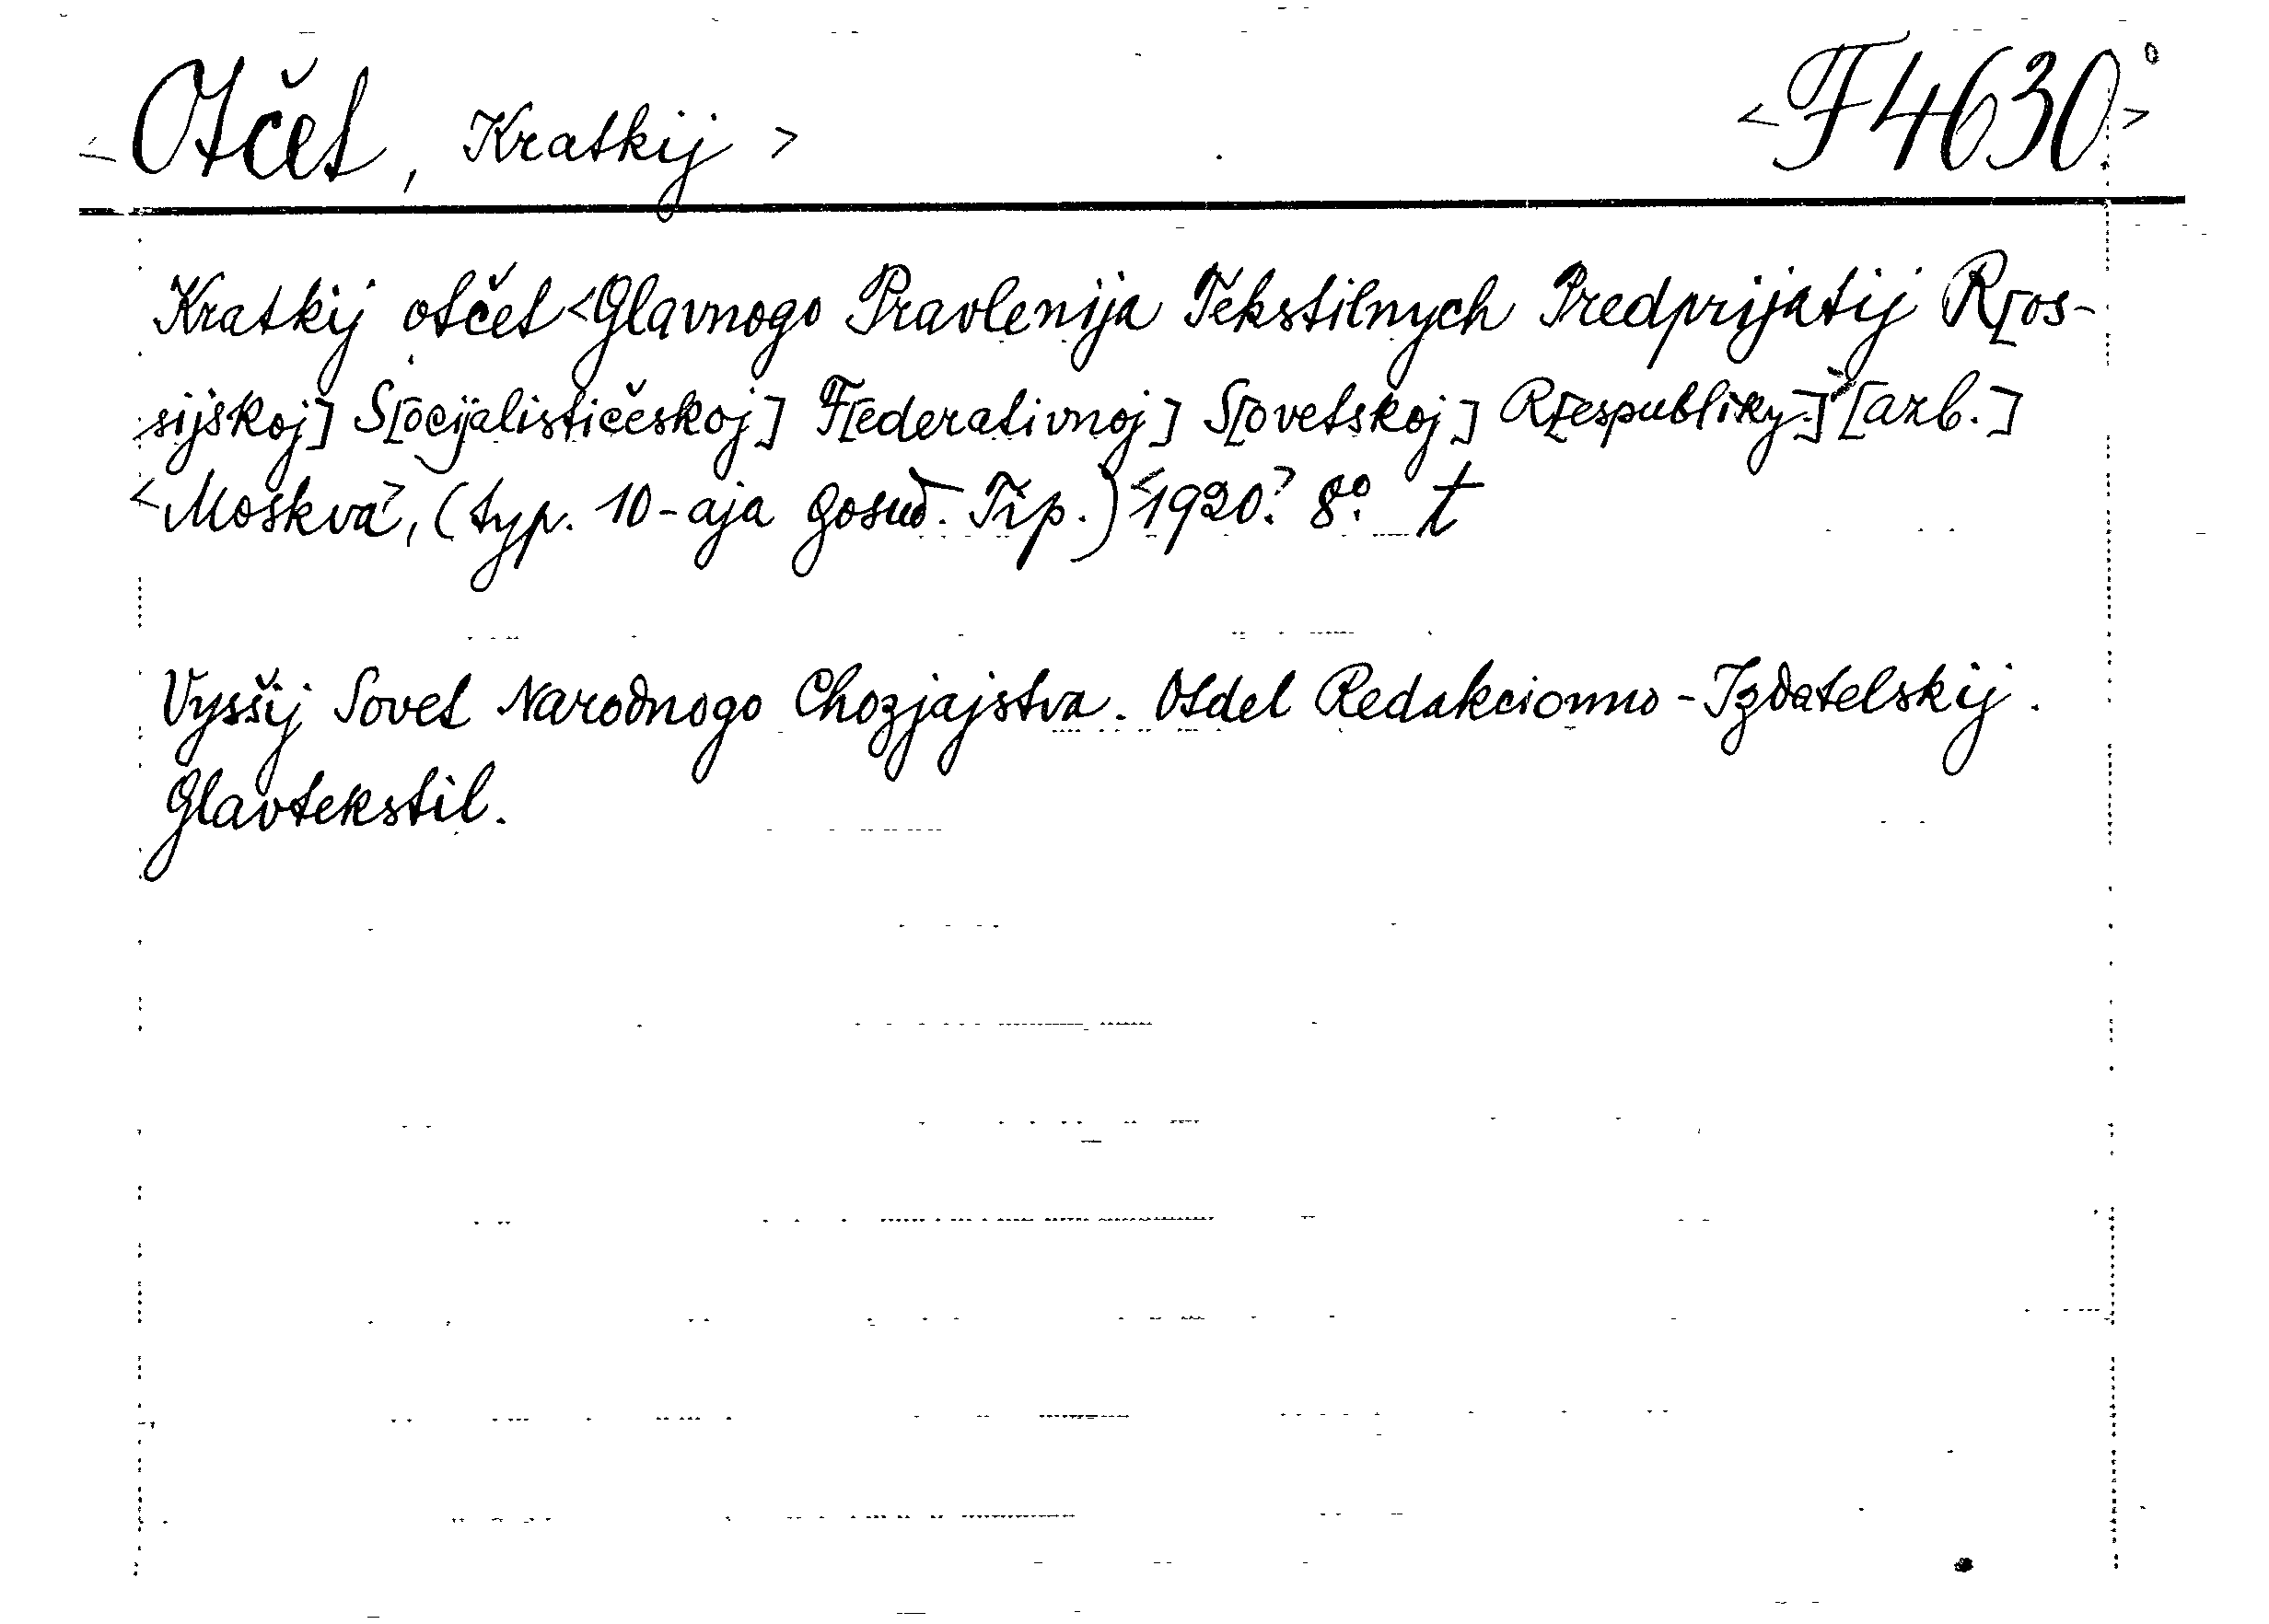 <Otčet, Kratkij> <F4630°>
Kratkij otčet <Glavnogo Pravlenija Tekstilnych Predprijatij R[os-
sijskoj] S[ocijalističeskoj] F[ederativnoj] S[ovetskoj] R[espubliky.]> [azb.]
<Moskva>, (typ. 10-aja Gosud. Tip.) <1920.> 8°. t
Vysšij Sovet Narodnogo Chozjajstva. Otdel Redakcionno-Izdatelskij.
Glavtekstil.